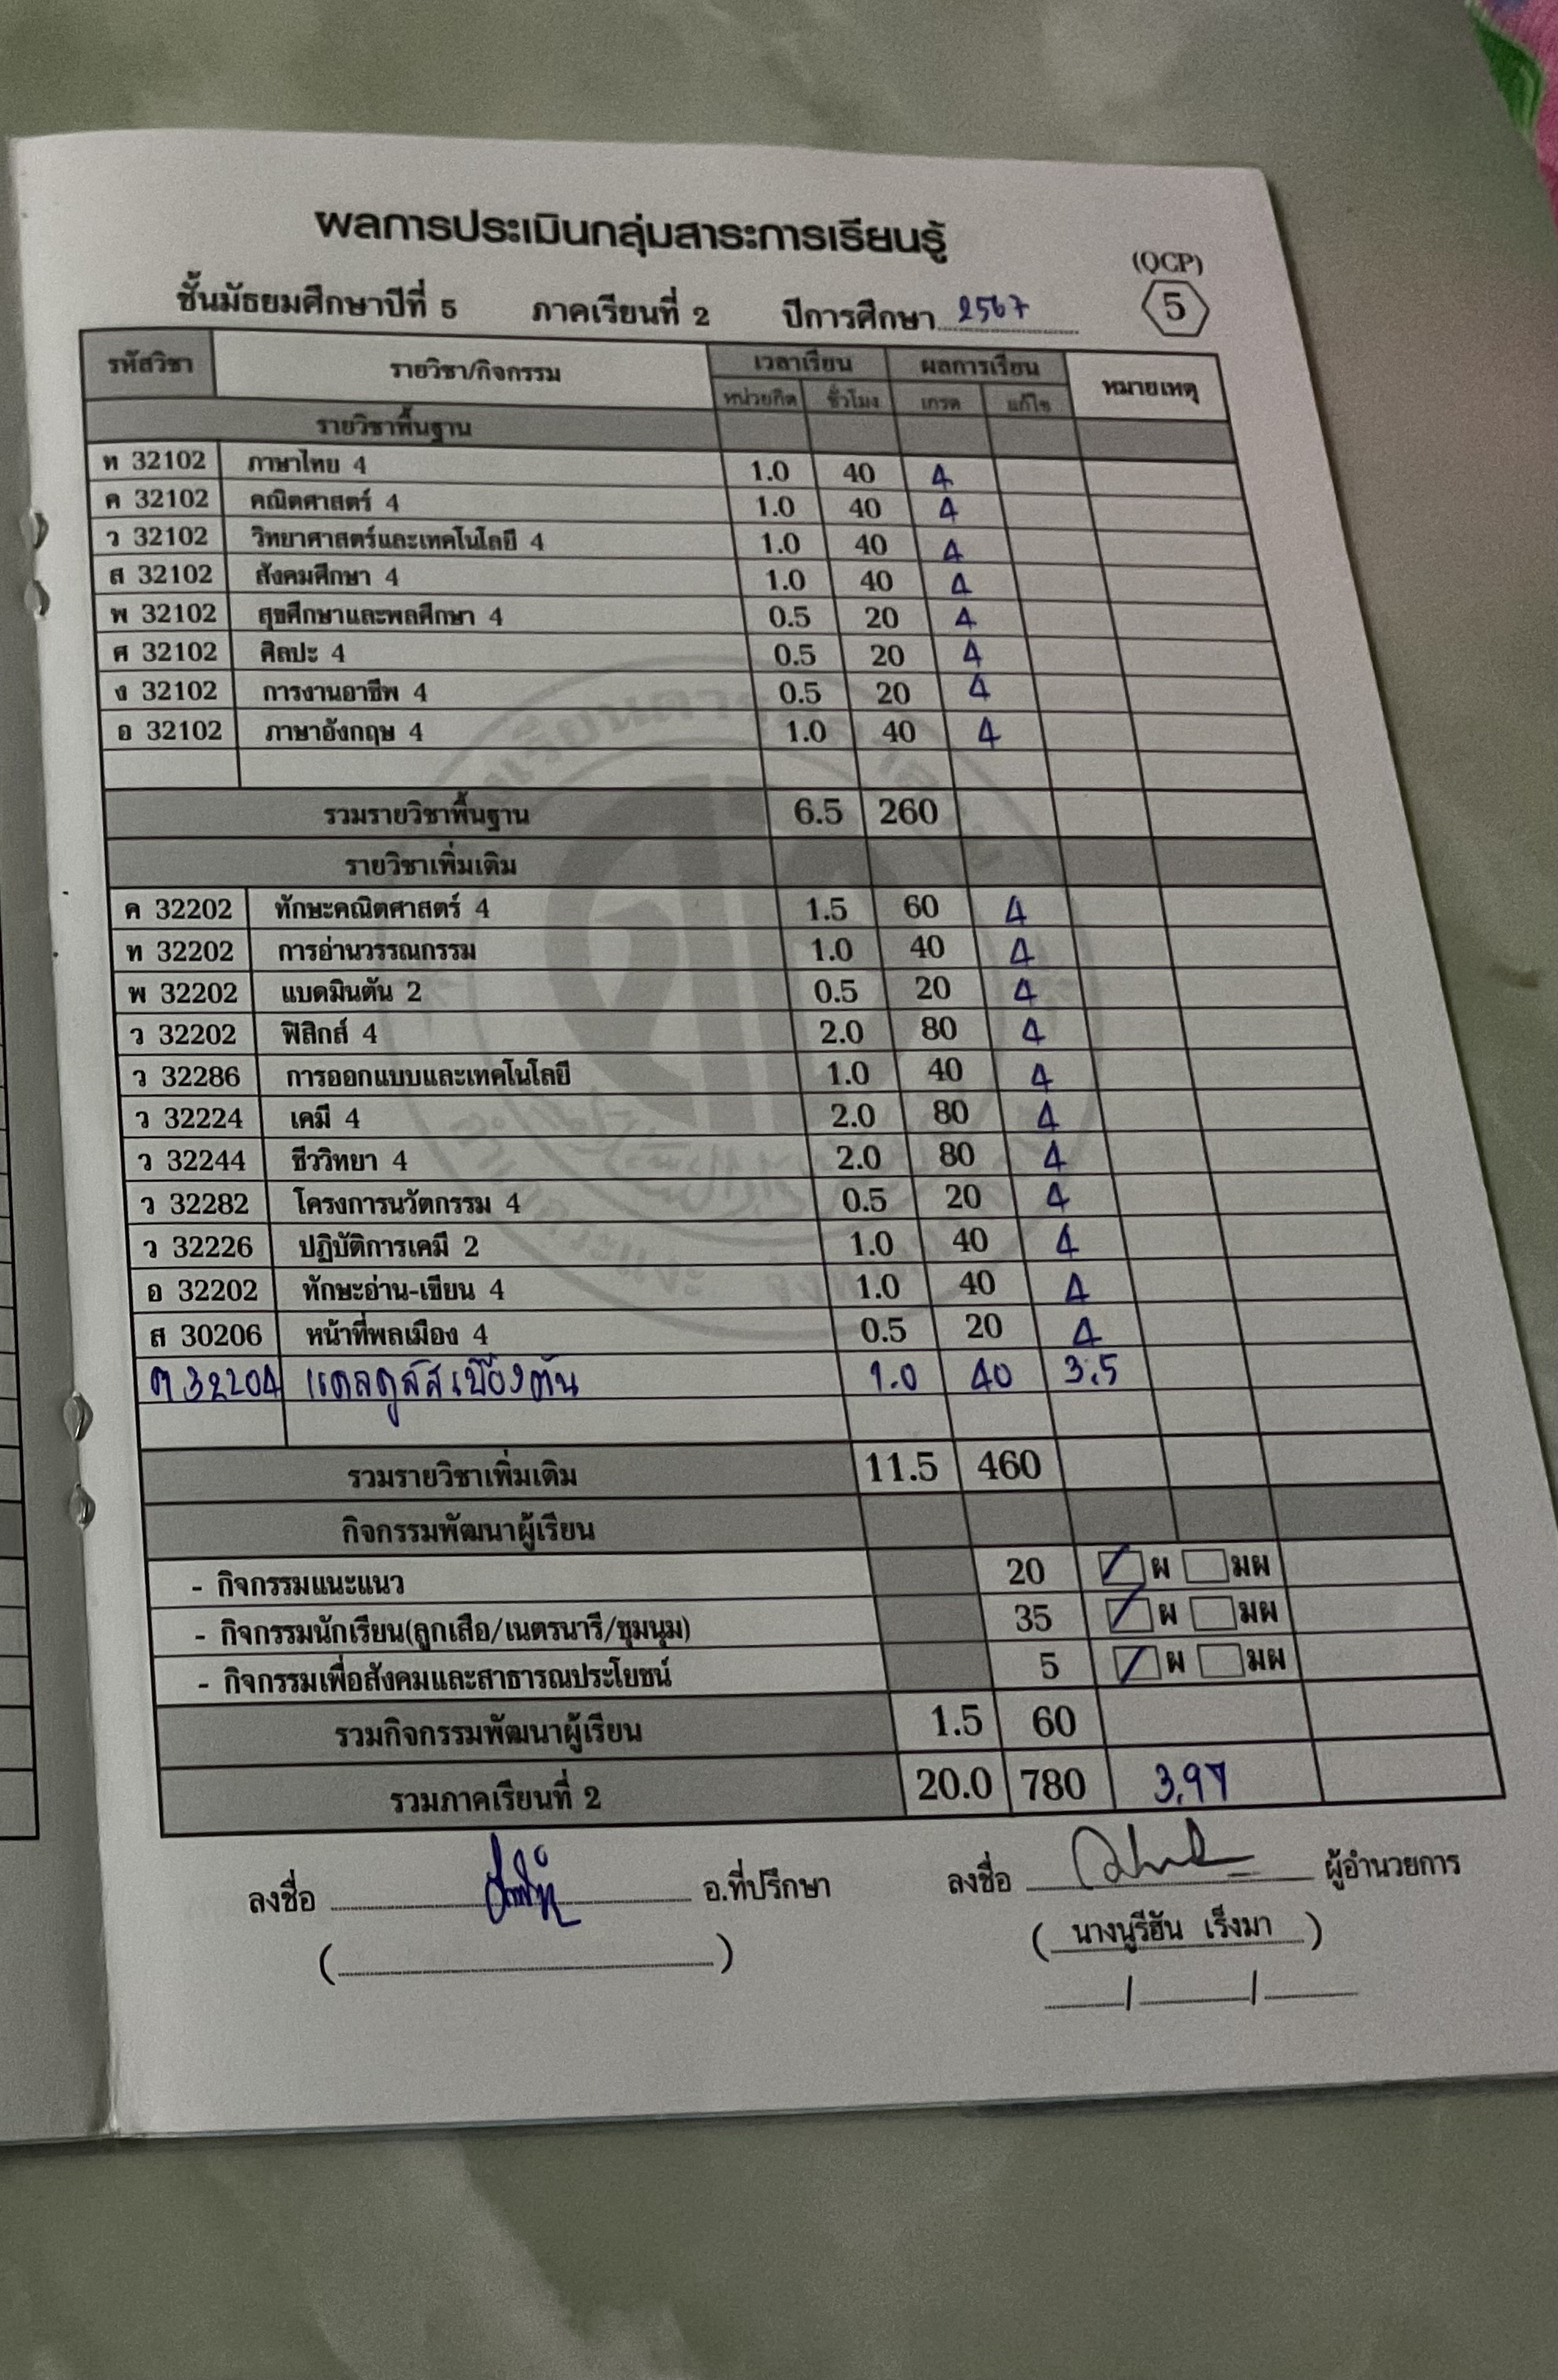 ผลการประเมินกลุ่มสาระการเรียนรู้
(QCP)
ชั้นมัธยมศึกษาปีที่ 5 ภาคเรียนที่ 2 ปีการศึกษา 2567 5
รหัสวิชา รายวิชา/กิจกรรม เวลาเรียน ผลการเรียน หมายเหตุ
หน่วยกิต ชั่วโมง เกรด แก้ไข
รายวิชาพื้นฐาน
ท 32102 ภาษาไทย 4 1.0 40 4
ค 32102 คณิตศาสตร์ 4 1.0 40 4
ว 32102 วิทยาศาสตร์และเทคโนโลยี 4 1.0 40 4
ส 32102 สังคมศึกษา 4 1.0 40 4
พ 32102 สุขศึกษาและพลศึกษา 4 0.5 20 4
ศ 32102 ศิลปะ 4 0.5 20 4
ง 32102 การงานอาชีพ 4 0.5 20 4
อ 32102 ภาษาอังกฤษ 4 1.0 40 4
รวมรายวิชาพื้นฐาน 6.5 260
รายวิชาเพิ่มเติม
ค 32202 ทักษะคณิตศาสตร์ 4 1.5 60 4
ท 32202 การอ่านวรรณกรรม 1.0 40 4
พ 32202 แบดมินตัน 2 0.5 20 4
ว 32202 ฟิสิกส์ 4 2.0 80 4
ว 32286 การออกแบบและเทคโนโลยี 1.0 40 4
ว 32224 เคมี 4 2.0 80 4
ว 32244 ชีววิทยา 4 2.0 80 4
ว 32282 โครงการนวัตกรรม 4 0.5 20 4
ว 32226 ปฏิบัติการเคมี 2 1.0 40 4
อ 32202 ทักษะอ่าน-เขียน 4 1.0 40 4
ส 30206 หน้าที่พลเมือง 4 0.5 20 4
ค 32204 แคลคูลัสเบื้องต้น 1.0 40 3.5
รวมรายวิชาเพิ่มเติม 11.5 460
กิจกรรมพัฒนาผู้เรียน
- กิจกรรมแนะแนว 20 ผ มผ
- กิจกรรมนักเรียน(ลูกเสือ/เนตรนารี/ชุมนุม) 35 ผ มผ
- กิจกรรมเพื่อสังคมและสาธารณประโยชน์ 5 ผ มผ
รวมกิจกรรมพัฒนาผู้เรียน 1.5 60
รวมภาคเรียนที่ 2 20.0 780 3.97
ลงชื่อ อ.ที่ปรึกษา ลงชื่อ ผู้อำนวยการ
( ) ( นางนูรีฮัน เร็งมา )
/ /